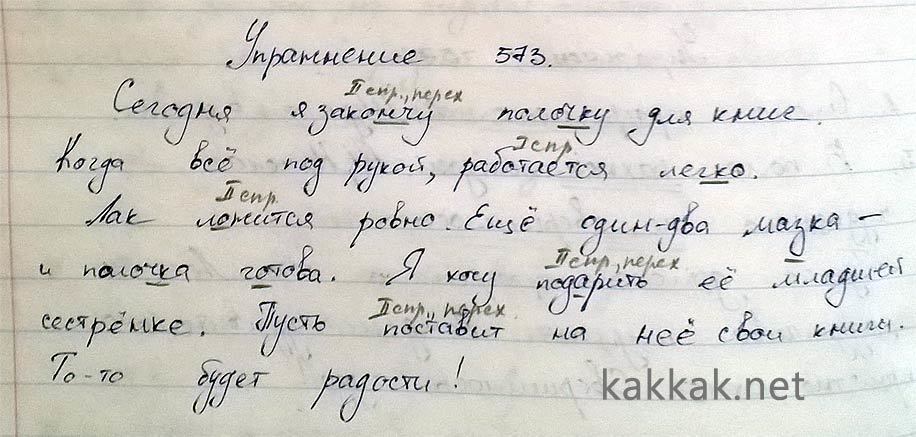 Упражнение 573.
II спр., перех
Сегодня я закончу полочку для книг.
I спр.
Когда всё под рукой, работается легко.
II спр.
Лак ложится ровно. Ещё один-два мазка –
II спр., перех
и полочка готова. Я хочу подарить её младшей
II спр., перех.
сестрёнке. Пусть поставит на неё свои книги.
То-то будет радости!
kakkak.net